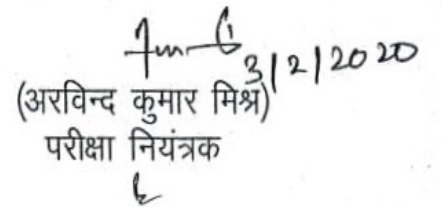 3/2/2020
(अरविन्द कुमार मिश्र)
परीक्षा नियंत्रक